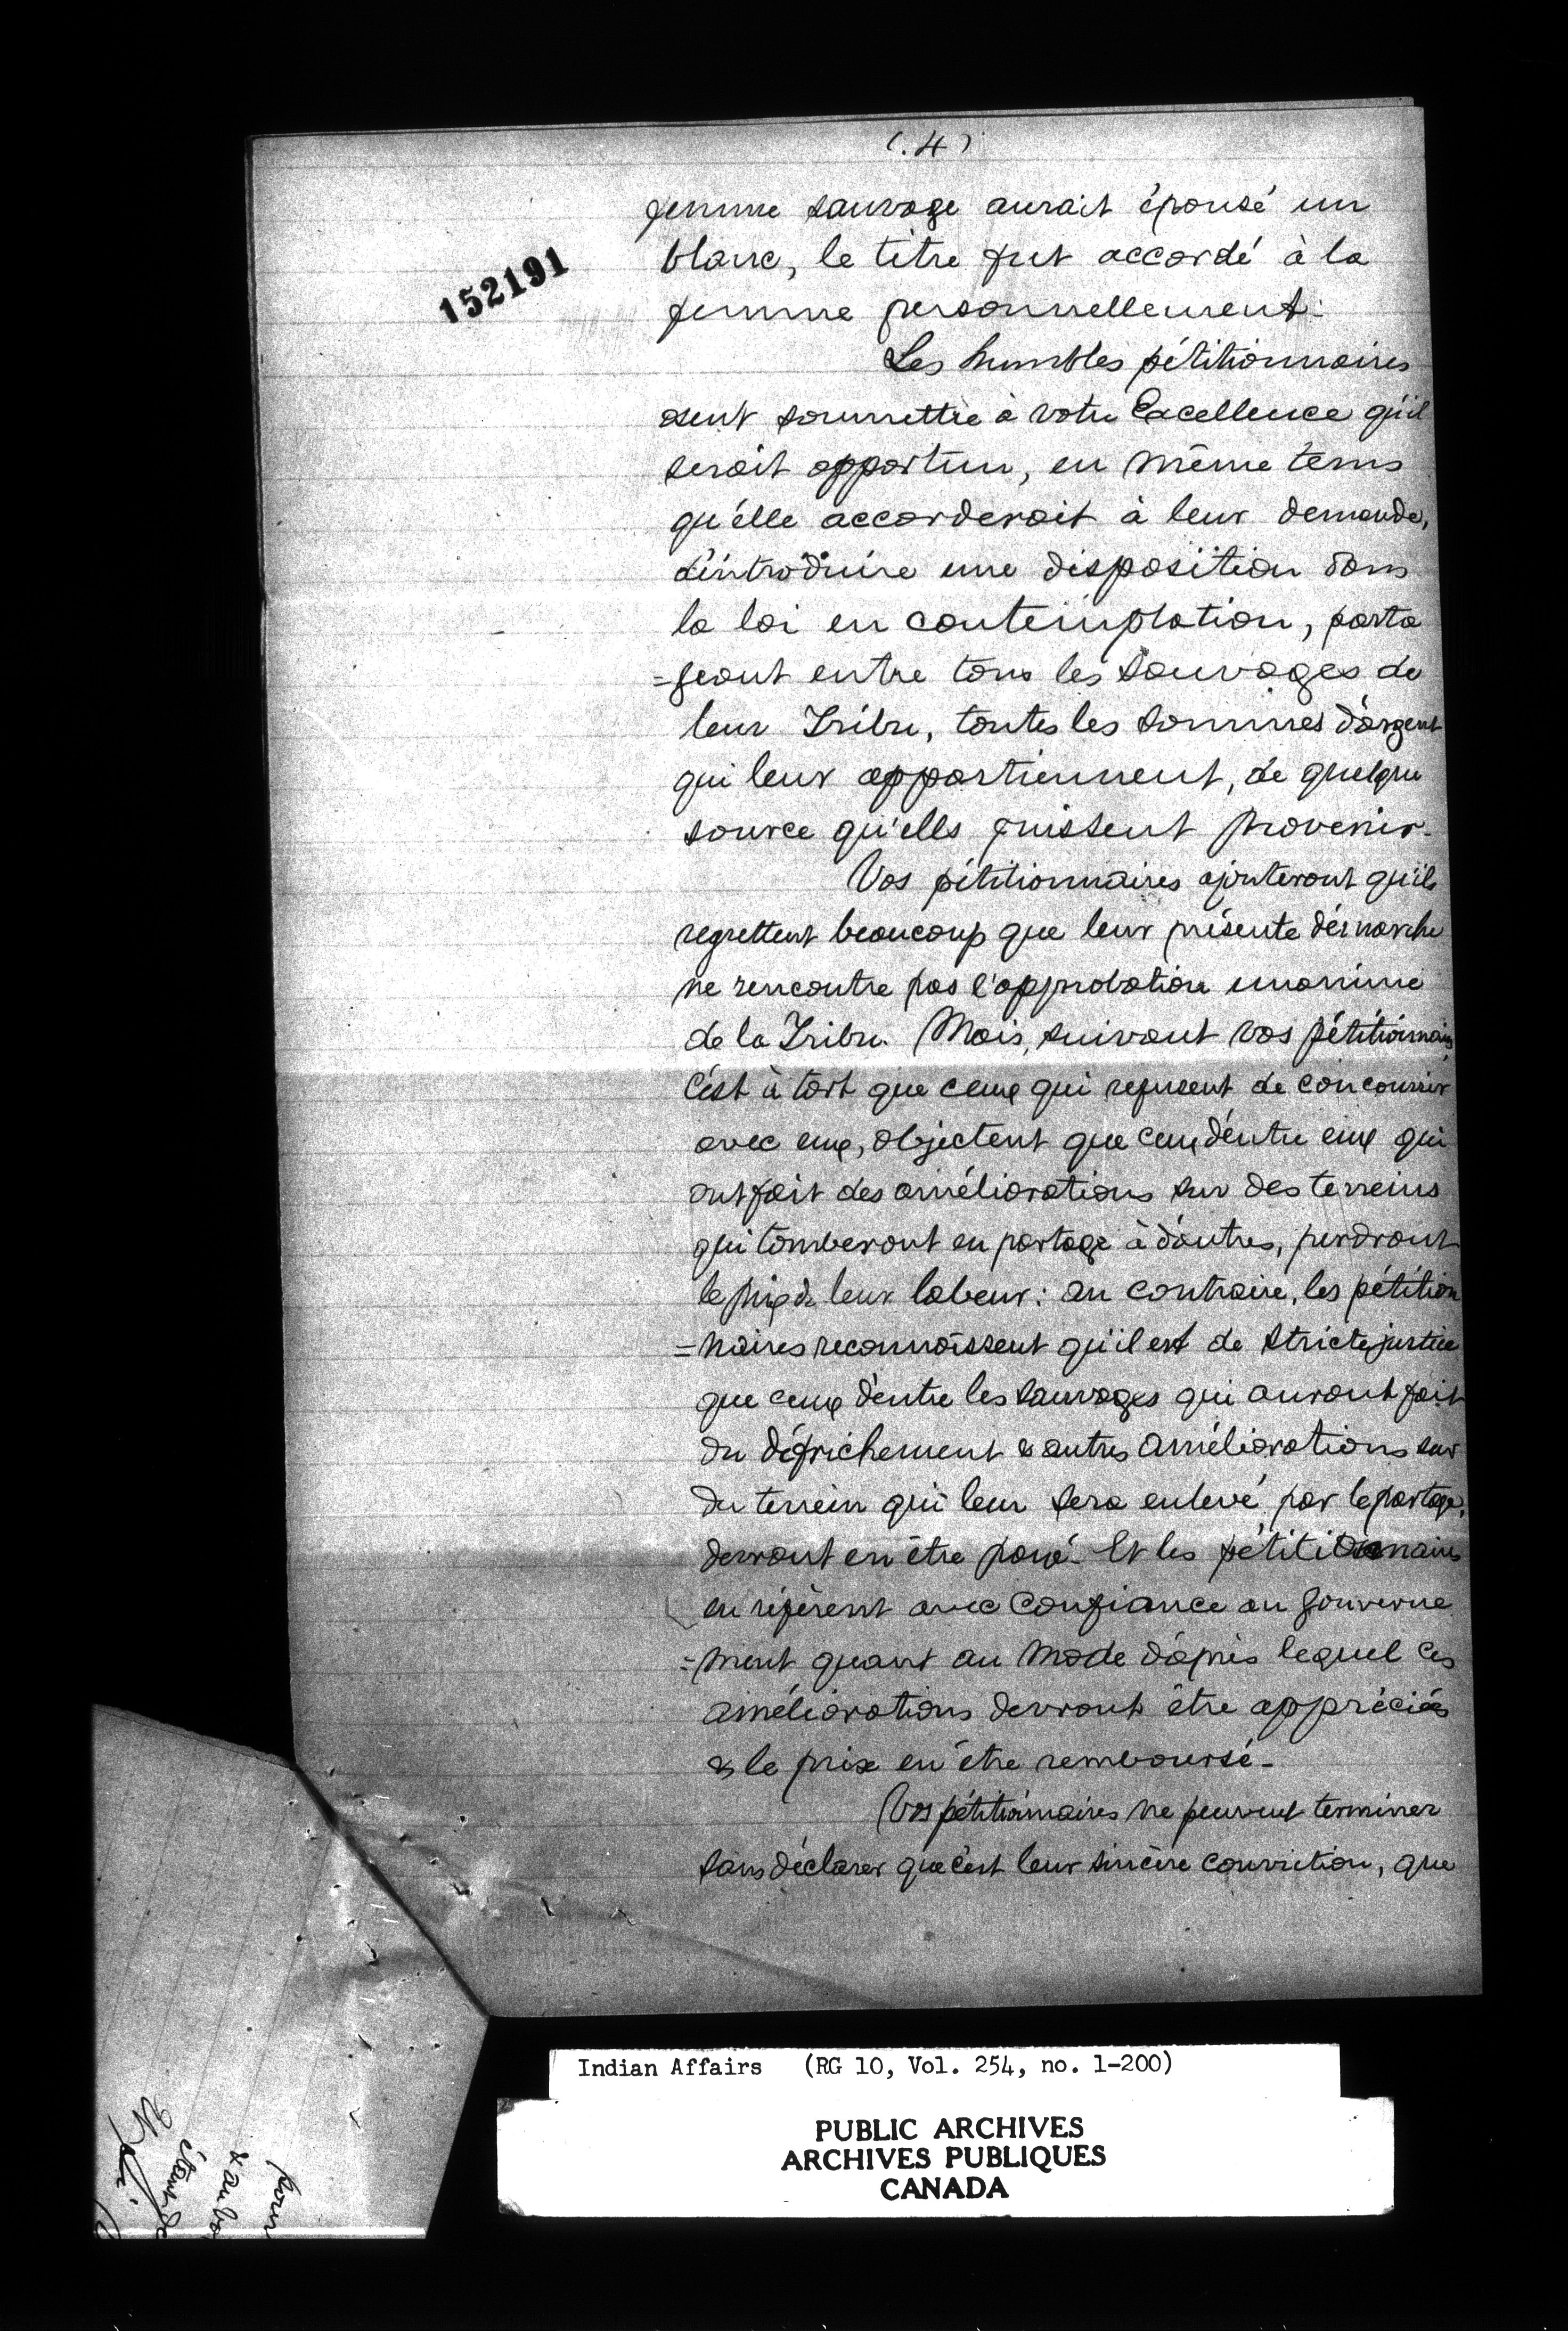 (.4)
152191
femme sauvage aurait épousé un
blanc, le titre fut accordé à la
femme personnellement.
Les humbles pétitionnaires
osent soumettre à votre Excellence qu'il
serait opportun, en même tems
qu'élle accorderait à leur demande,
d'introduire une disposition dans
la loi en contemplation, parta
=geant entre tous les sauvages de
leur Tribu, toutes les sommes d'argent
qui leur appartiennent, de quelque
source qu'elles puissent provenir.
Vos pétitionnaires ajouteront qu'ils
regrettent beaucoup que leur présente démarche
ne rencontre pas l'approbation unanime
de la Tribu. Mais, suivant vos pétitionnaires
c'est à tort que ceux qui refusent de concourir
avec eux, objectent que ceux d'entre eux qui
ont fait des améliorations sur des terreins
qui tomberont en partage à d'autres, perdront
le prix de leur labeur: au contraire, les pétition
=naires reconnaissent qu'il est de stricte justice
que ceux d'entre les sauvages qui auront fait
du défrichement & autres améliorations sur
du terrein qui leur sera enlevé par le partage,
devront en être payé. Et les pétitionnaires
en réfèrent avec confiance au gouverne
=ment quant au mode d'après lequel ces
améliorations devront être appréciées
& le prix en être remboursé-
Vos pétitionnaires ne peuvent terminer
sans déclarer que c'est leur sincère conviction, que
Indian Affairs (RG 10, Vol. 254, no. 1-200)
PUBLIC ARCHIVES
ARCHIVES PUBLIQUES
CANADA